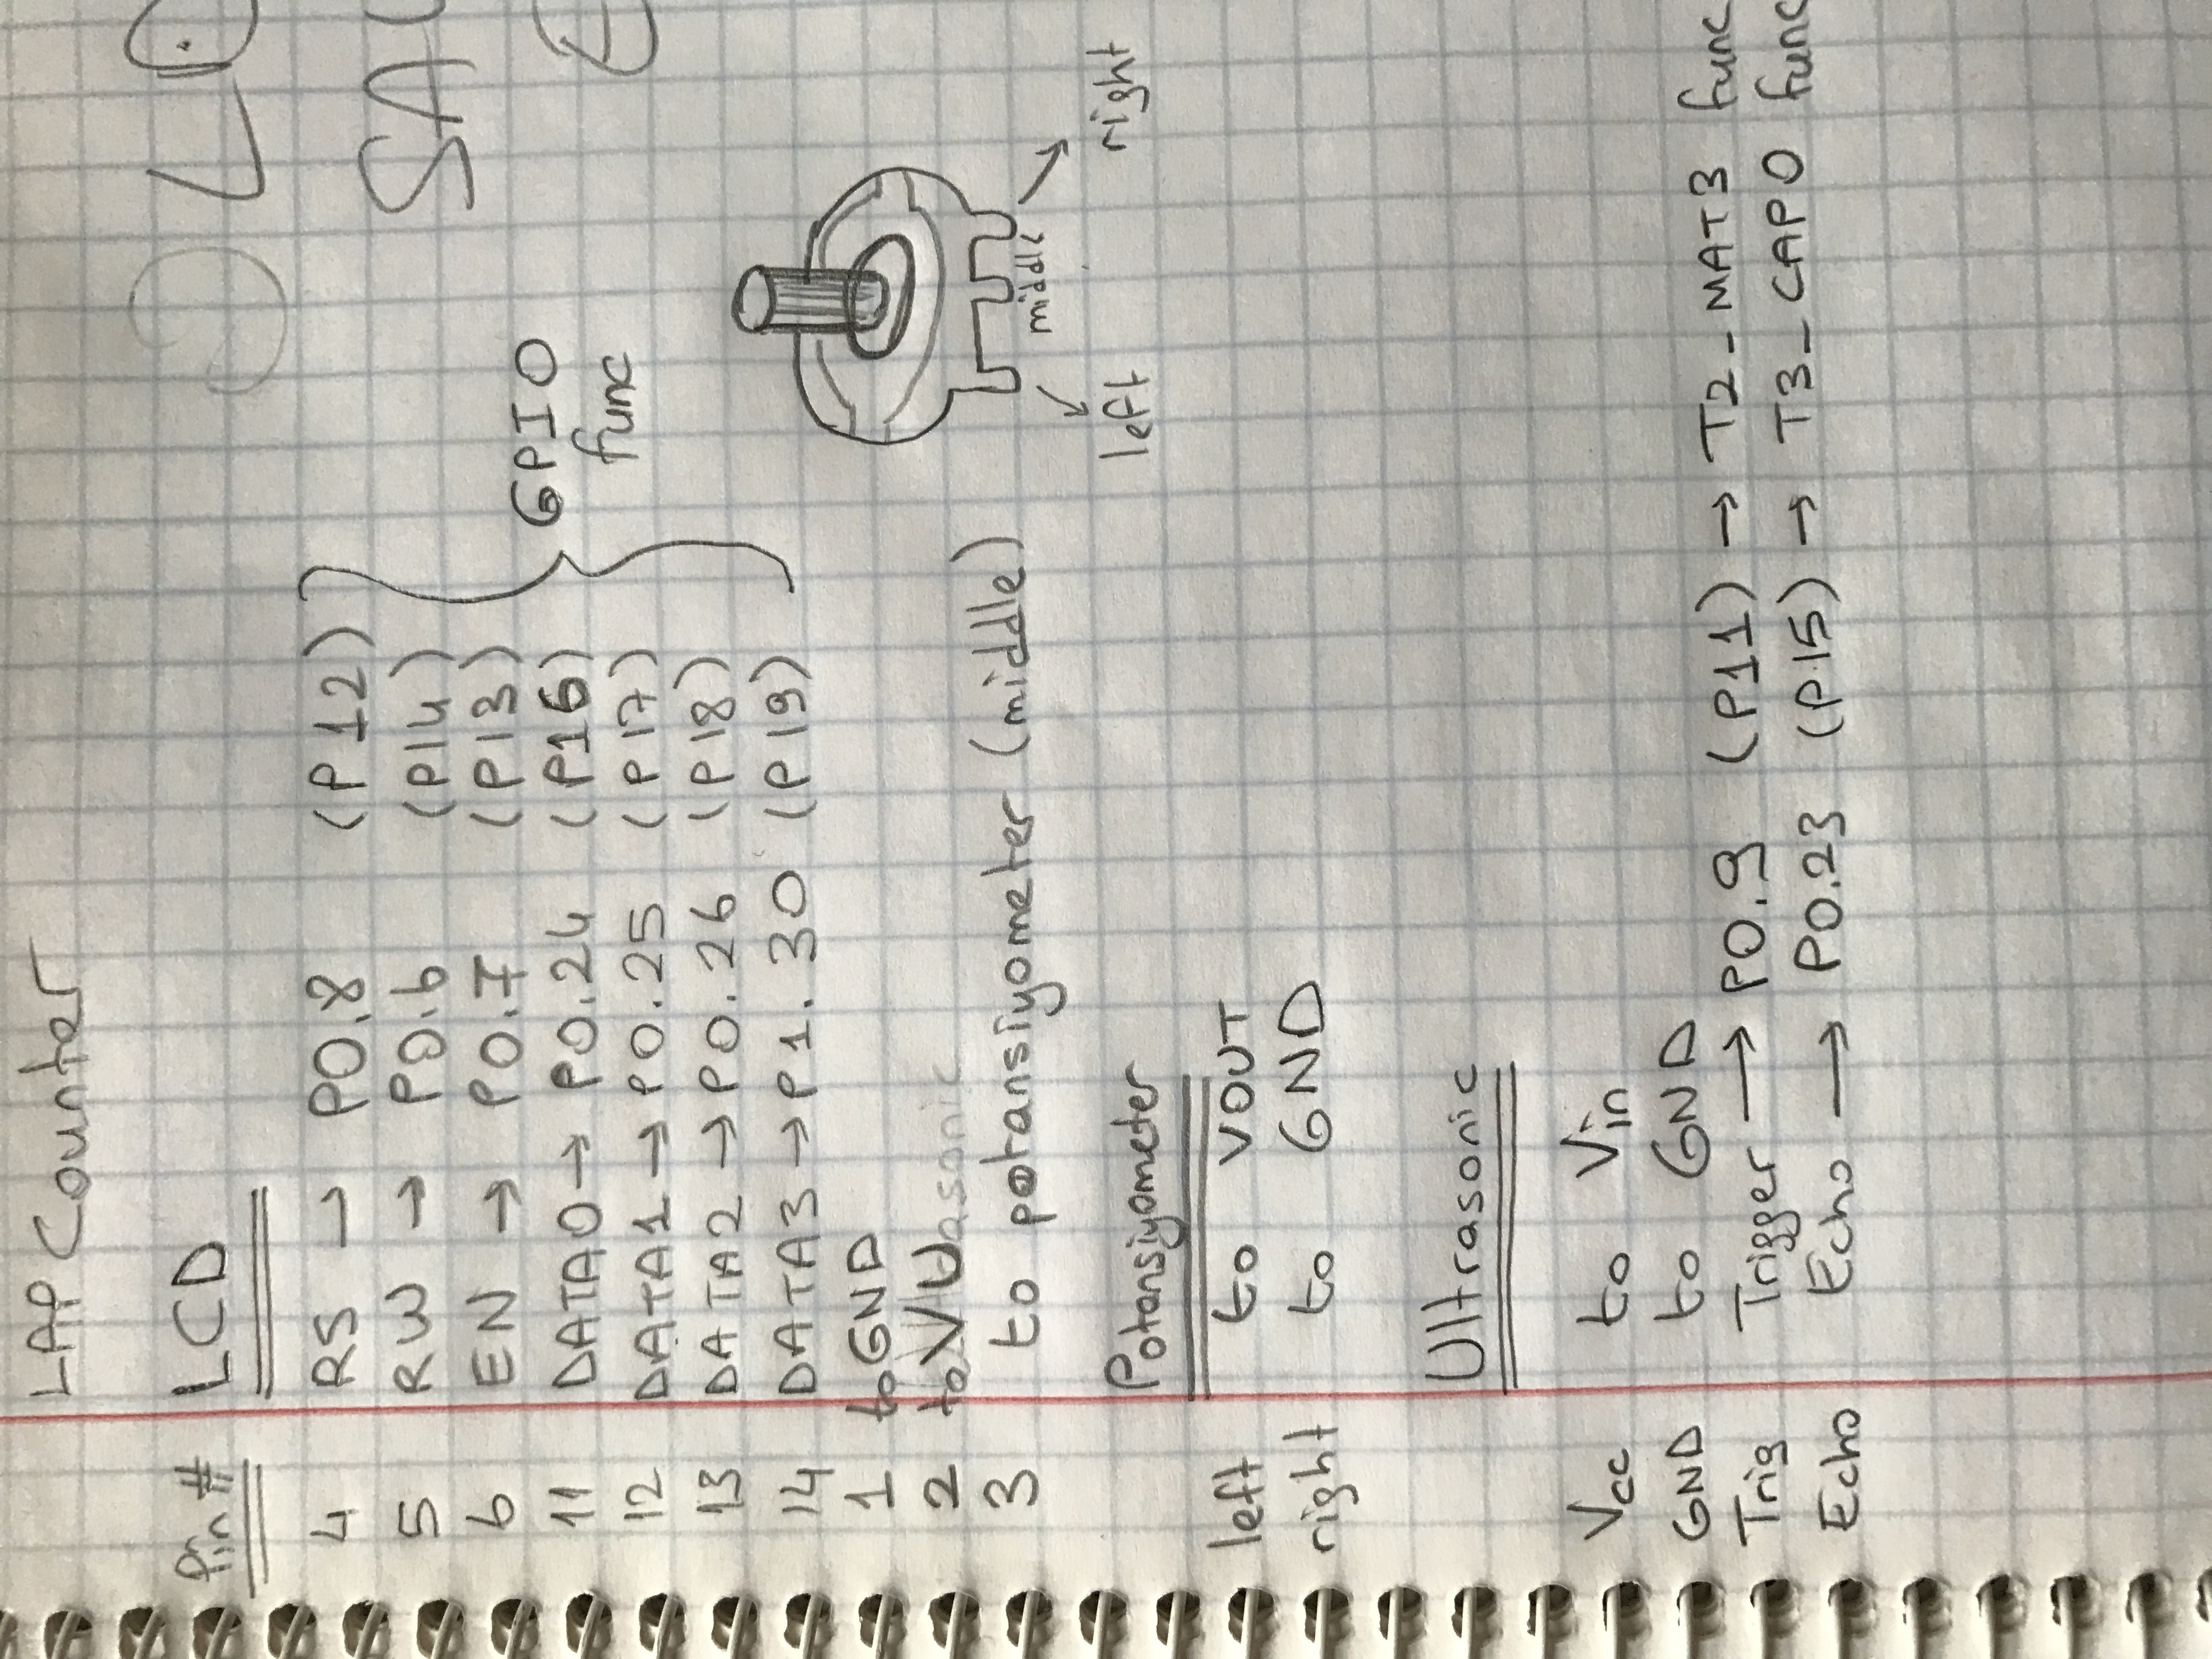 LAP Counter
Pin # LCD
4 RS → P0.8 (P12)
5 RW → P0.6 (P14)
6 EN → P0.7 (P13)
11 DATA0 → P0.24 (P16)
12 DATA1 → P0.25 (P17)
13 DATA2 → P0.26 (P18)
14 DATA3 → P1.30 (P19)
GPIO
func
1 to GND
2 to VU
3 to potansiyometer (middle)
middle
left right
Potansiyometer
left to VOUT
right to GND
Ultrasonic
Vcc to Vin
GND to GND
Trig Trigger → P0.9 (P11) → T2_MAT3 func
Echo Echo → P0.23 (P15) → T3_CAP0 func